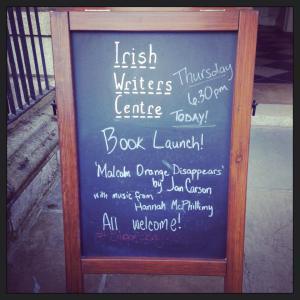 Irish
Writers
Centre
Thursday
6.30pm
TODAY!
Book Launch!
'Malcolm Orange Disappears'
by Jan Carson
with music from
Hannah McPhillimy
All welcome!